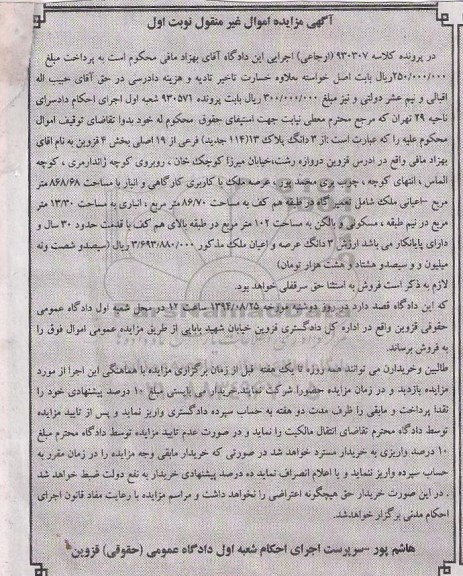 آگهی مزایده اموال غیر منقول نوبت اول
در پرونده کلاسه ۹۳۰۳۰۷ (ارجاعی) اجرایی این دادگاه آقای بهزاد مافی محکوم است به پرداخت مبلغ
۲۵۰/۰۰۰/۰۰۰ریال بابت اصل خواسته بعلاوه خسارت تاخیر تادیه و هزینه دادرسی در حق آقای حبیب اله
اقبالی و نیم عشر دولتی و نیز مبلغ ۳۰۰/۰۰۰/۰۰۰ ریال بابت پرونده ۹۳۰۵۷۶ شعبه اول اجرای احکام دادسرای
ناحیه ۲۹ تهران که مرجع محترم معطی نیابت جهت استیفای حقوق محکوم له خود بدوا تقاضای توقیف اموال
محکوم علیه را که عبارت است :از ۳ دانگ پلاک ۱۳(۱۱۴ جدید) فرعی از ۱۹ اصلی بخش ۴ قزوین به نام اقای
بهزاد مافی واقع در ادرس قزوین دروازه رشت،خیابان میرزا کوچک خان ، روبروی کوچه ژاندارمری ، کوچه
الماس ، انتهای کوچه ، چوب بری محمد پور - عرصه ملک با کاربری کارگاهی و انبار با مساحت ۸۶۸/۶۸ متر
مربع -اعیانی ملک شامل تعمیر گاه در طبقه هم کف به مساحت ۸۶/۷۰ متر مربع ، انباری به مساحت ۱۳/۳۰ متر
مربع در نیم طبقه ، مسکونی و بالکن به مساحت ۱۰۲ متر مربع در طبقه بالای هم کف با قدمت حدود ۳۰ سال و
دارای پایانکار می باشد ارزش ۳ دانگ عرصه و اعیان ملک مذکور ۳/۶۹۳/۸۸۰/۰۰۰ ریال (سیصدو شصت ونه
میلیون و و سیصدو هشتاد و هشت هزار تومان)
لازم به ذکر است فروش به استثنا حق سرقفلی خواهد بود.
که این دادگاه قصد دارد در روز دوشنبه مورخه ۱۳۹۴/۰۸/۲۵ ساعت ۱۲ در محل شعبه اول دادگاه عمومی
حقوقی قزوین واقع در اداره کل دادگستری قزوین خیابان شهید بابایی از طریق مزایده عمومی اموال فوق را
به فروش برساند.
طالبین وخریداران می توانند همه روزه تا یک هفته قبل از زمان برگزاری مزایده با هماهنگی این اجرا از مورد
مزایده بازدید و در زمان مزایده حضورا شرکت نمایند.خریدار می بایستی مبلغ ۱۰ درصد پیشنهادی خود را
نقدا پرداخت و مابقی را ظرف مدت دو هفته به حساب سپرده دادگستری واریز نماید و پس از تایید مزایده
توسط دادگاه محترم تقاضای انتقال مالکیت را نماید و در صورت عدم تایید مزایده توسط دادگاه محترم مبلغ
۱۰ درصد واریزی به خریدار مسترد خواهد شد در صورتی که خریدار مابقی وجه مزایده را در زمان مقرر به
حساب سپرده واریز ننماید و یا اعلام انصراف نماید ده درصد پیشنهادی خریدار به نفع دولت ضبط خواهد شد
. در این صورت خریدار حق هیچگونه اعتراضی را نخواهد داشت و مراسم مزایده با رعایت مفاد قانون اجرای
احکام مدنی برگزار خواهدشد.
هاشم پور -سرپرست اجرای احکام شعبه اول دادگاه عمومی (حقوقی) قزوین